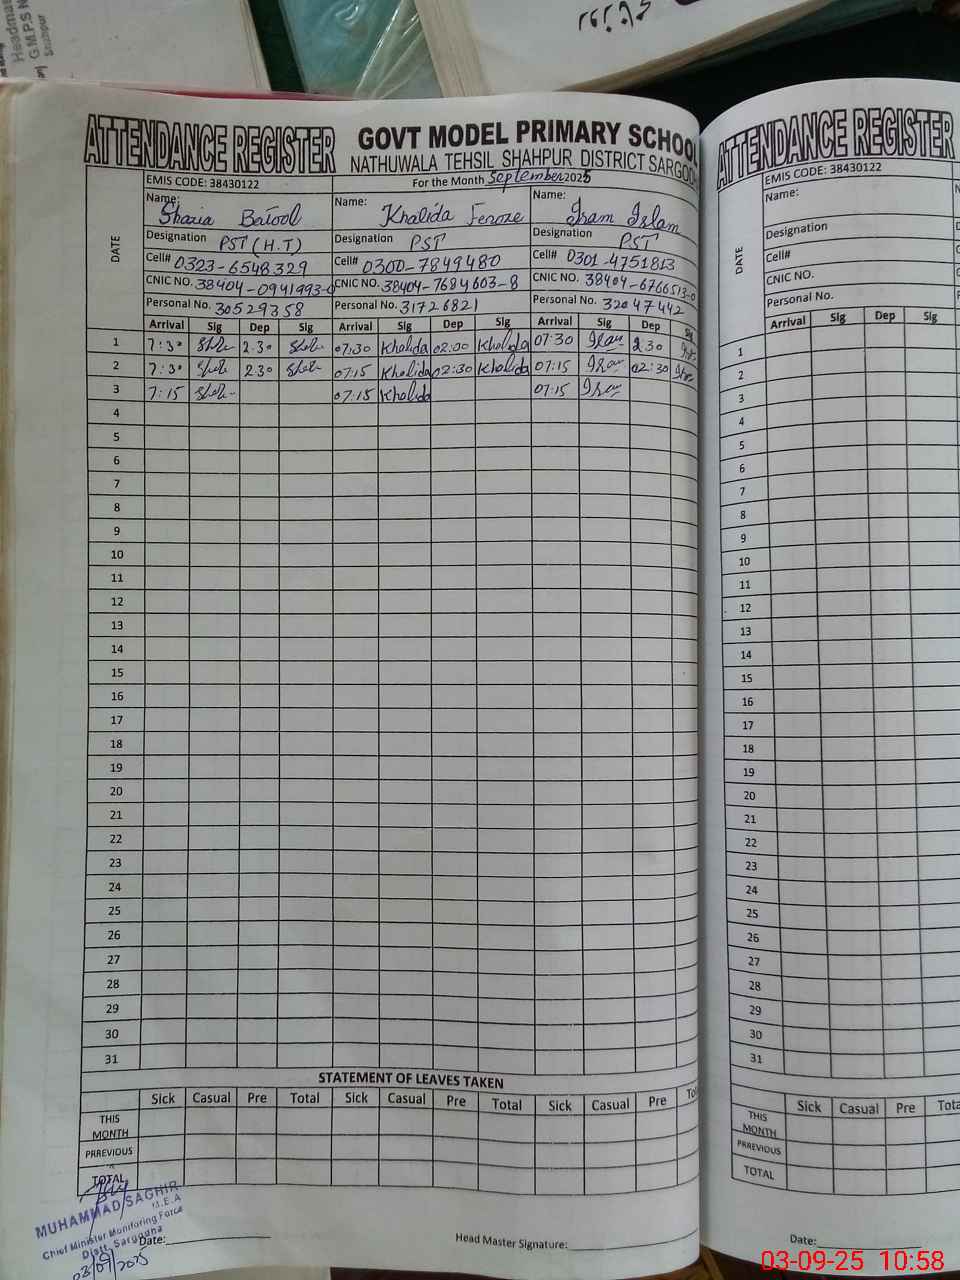 Headmas
G.M.P.S N
Shahpur
ATTENDANCE REGISTER GOVT MODEL PRIMARY SCHOOL
NATHUWALA TEHSIL SHAHPUR DISTRICT SARGOD
EMIS CODE: 38430122 For the Month September 2025
Name: Shazia Batool Name: Khalida Feroze Name: Iram Islam
Designation PST (H.T) Designation PST Designation PST
Cell# 0323-6548329 Cell# 0300-7849480 Cell# 0301-4751813
CNIC NO. 38404-0941993-0 CNIC NO. 38404-7684603-8 CNIC NO. 38404-6766513-0
Personal No. 30529358 Personal No. 31726821 Personal No. 32047442
DATE Arrival Sig Dep Sig Arrival Sig Dep Sig Arrival Sig Dep Sig
1 7:30 2:30 07:30 Khalida 02:00 Khalida 07:30 Iram 2:30
2 7:30 2:30 07:15 Khalida 02:30 Khalida 07:15 Iram 02:30
3 7:15 07:15 Khalida 07:15 Iram
4
5
6
7
8
9
10
11
12
13
14
15
16
17
18
19
20
21
22
23
24
25
26
27
28
29
30
31
STATEMENT OF LEAVES TAKEN
Sick Casual Pre Total Sick Casual Pre Total Sick Casual Pre Tot
THIS MONTH
PRREVIOUS
TOTAL
MUHAMMAD SAGHIR
M.E.A
Chief Minister Monitoring Force
Distt. Sargodha
03/09/2025
Date: Head Master Signature:
ATTENDANCE REGISTER
EMIS CODE: 38430122
Name:
Designation
Cell#
CNIC NO.
Personal No.
DATE Arrival Sig Dep Sig
1
2
3
4
5
6
7
8
9
10
11
12
13
14
15
16
17
18
19
20
21
22
23
24
25
26
27
28
29
30
31
Sick Casual Pre Tota
THIS MONTH
PRREVIOUS
TOTAL
Date:
03-09-25 10:58